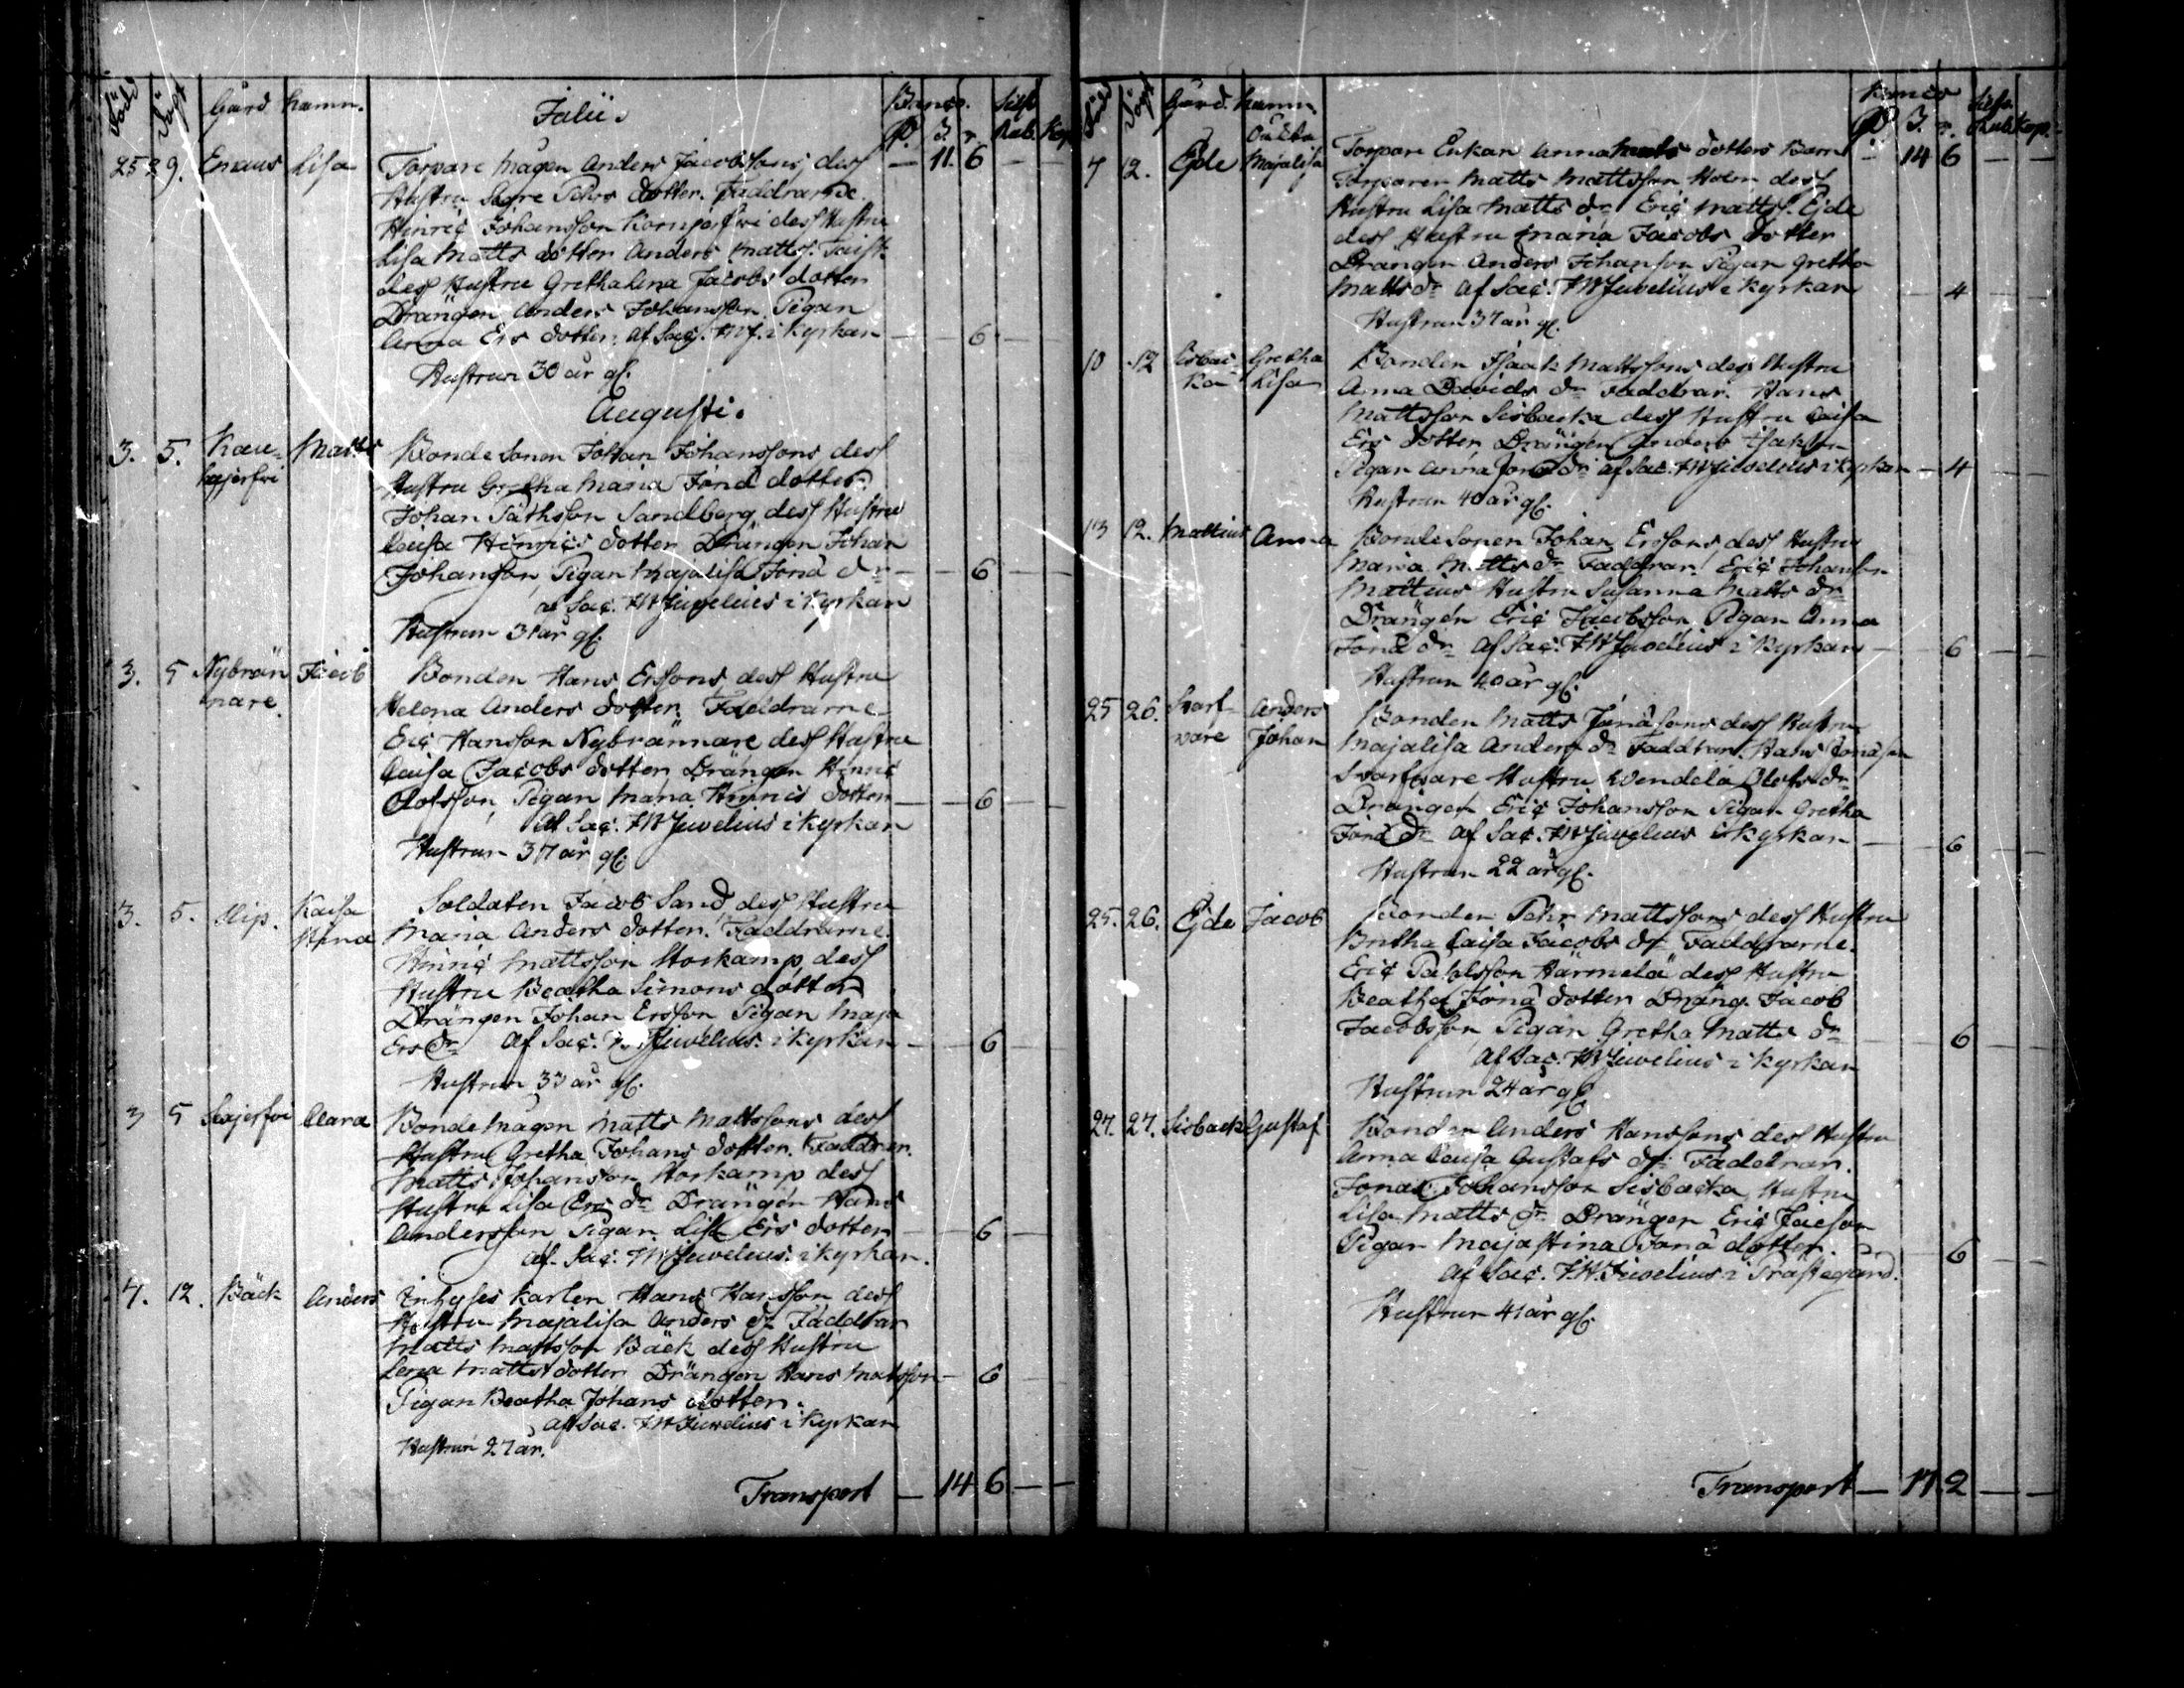 Född Döpt Gård. Namn. Julii. Banco. Silfv.
R. S. r. Rub. Kop.
25 29. Enaus Lisa Torpare Mågen Anders Jacobssons dess — 11. 6 — —
Hustru Segre Pehrs dotter. Faddrarne
Hinric Johansson Kornjerfvi dess Hustru
Lisa Matts dotter Anders Matts.
dess Hustru Grethalena Jacobs dotter
Drängen Anders Johansson, Pigan
Anna Ers dotter, af Sac. FWJ. i Kyrkan — — 6 — —
Hustrun 30 år gl.
Augusti.
3. 5. Kau- Matts Bonde Sonen Johan Johanssons dess
hajerfvi Hustru Gretha Maria Jona dotter
Johan Sandberg dess Hustru
Caisa Hinrics dotter Drängen Johan
Johansson, Pigan Majalisa Jona dr — — 6 — —
af Sac. FWJuvelius i Kyrkan
Hustrun 31 år gl.
3. 5 Nybrän- Jacob Bonden Hans Erssons dess Hustru
nare. Helena Anders dotter, Faddrarne
Eric Hansson Nybrännare dess Hustru
Caisa Jacobs dotter, Drängen Hinric
Olofsson, Pigan Maria Hinrics dotter — — 6 — —
af Sac. FWJuvelius i Kyrkan
Hustrun 37 år gl.
3. 5. Slip. Kaisa Soldaten Jacob Sand, dess Hustru
Stina Maria Anders dotter. Faddrarne.
Hinric Mattsson Storkamp dess
Hustru Beatha Simons dotter
Drängen Johan Ersson Pigan Maja
Ers dr af Sac. FWJuvelius. i Kyrkan — — 6 — —
Hustrun 33 år gl.
3 5 Clara Bonde Mågen Matts Mattssons dess
Hustru Gretha Johans dotter. Faddrar.
Matts Johansson Storkamp dess
Hustru Lisa Ers dr Drängen Hans
Andersson Pigan Lisa Ers dotter — — 6 — —
af Sac. FWJuvelius. i Kyrkan.
7. 12. Bäck Anders Inhyses Karlen Hans Hansson dess
Hustru Majalisa Anders dr Faddrar
Matts Mattsson Bäck dess Hustru
Lena Matts dotter Drängen Hans Matsson — — 6 — —
Pigan Beatha Johans dotter.
af Sac. FWJuvelius i Kyrkan
Hustrun 27 år.
Transport — 14 6 — —
Född Döpt Gård. Namn Banco Silfv.
R. S. r. Rub. Kop.
Oäkta Torpare Enkan Anna Matts dotters Barn — 14 6 — —
7 12. Ejde Majalisa Torparen Matts Mattsson Holm dess
Hustru Lisa Matts dr Eric Matts. Ejde
dess Hustru Maria Jacobs dotter
Drängen Anders Johansson Pigan Gretha
Matts dr af Sac. FWJuvelius i Kyrkan — 4 — —
Hustrun 37 år gl.
10 12 Sisbac- Gretha Bonden Isaak Mattssons dess Hustru
ka Lisa Anna Davids dr Faddrar. Hans
Mattsson Sisbacka dess Hustru Caisa
Ers dotter, Drängen Anders Isaksson
Pigan Anna Jona dr af Sac. FWJuvelius i Kyrkan — 4 — —
Hustrun 40 år gl.
13 12. Mattius Anna Bonde Sonen Johan Erssons, dess Hustru
Maria Matts dr Faddrar. Eric Johansson
Mattius Hustru Susanna Matts dr
Drängen Eric Jacobsson, Pigan Anna
Jona dr af Sac. FWJuvelius i Kyrkan — 6 — —
Hustrun 40 år gl.
25 26. Svarf- Anders Bonden Matts Jonassons dess Hustru
vare Johan Majalisa Anders dr Faddrar. Hans Jonasson
Svarfvare Hustru Wendela Olofs dr
Drängen Eric Johansson Pigan Gretha
Jona dr af Sac. FWJuvelius i Kyrkan — 6 — —
Hustrun 22 år gl.
25. 26. Ejde Jacob Bonden Pehr Mattssons, dess Hustru
Britha Caisa Jacobs dr Faddrarne.
Eric Påhlsson Härmälä dess Hustru
Beatha Jona dotter Dräng. Jacob
Jacobsson, Pigan Gretha Matts dr — 6 — —
af Sac. FWJuvelius i Kyrkan
Hustrun 24 år gl.
27. 27. Sisbacka Gustaf Bonden Anders Hanssons dess Hustru
Anna Caisa Gustafs dr Faddrar.
Jonas Johansson Sisbacka, Hustru
Lisa Matts dr Drängen Eric Jacsson
Pigan Majastina Jona dotter. — 6 — —
af Sac. FWJuvelius i Prästegård.
Hustrun 41 år gl.
Transport — 17. 2 — —